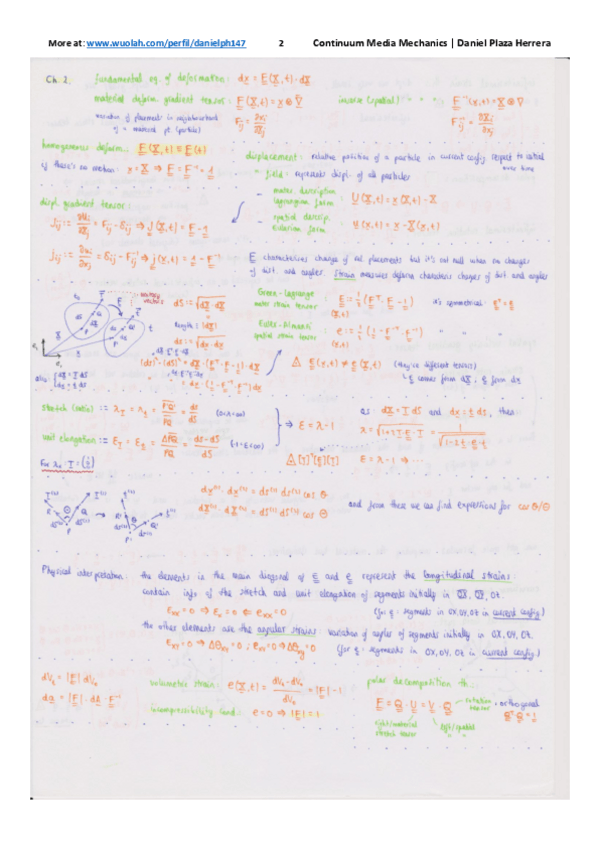 More at: www.wuolah.com/perfil/danielph147 2 Continuum Media Mechanics | Daniel Plaza Herrera
Ch. 2. fundamental eq. of deformation: dx = F(X,t)·dX
material deform. gradient tensor: F(X,t) = x ⊗ ∇ inverse (spatial) " " " F⁻¹(x,t) = X ⊗ ∇
variation of placement in neighbourhood of a material pt. (particle) Fij = ∂xi/∂Xj Fij⁻¹ = ∂Xi/∂xj
homogeneous deform.: F(X,t) = F(t)
if there's no motion: x = X ⇒ F = F⁻¹ = 1
displacement: relative position of a particle in current config. respect to initial
over time
" field: represents displ. of all particles
- mater. description lagrangian form: U(X,t) = x(X,t) - X
- spatial descrip. eulerian form: u(x,t) = x - X(x,t)
displ. gradient tensor:
Jij := ∂Ui/∂Xj = Fij - δij ⇒ J(X,t) = F - 1
jij := ∂ui/∂xj = δij - Fij⁻¹ ⇒ j(x,t) = 1 - F⁻¹
F characterises change of all placements but it's not null when no changes
of dist. and angles. Strain measures deform characterises changes of dist. and angles
Green-Lagrange mater. strain tensor: E := ½(Fᵀ·F - 1) it's symmetrical: Eᵀ = E
(X,t)
Euler-Almansi spatial strain tensor: e := ½(1 - F⁻ᵀ·F⁻¹) " " "
(x,t)
E(X,t) ≠ e(x,t) (they're different tensors)
E comes from dX; e from dx
unitary vectors
dS := √(dX·dX)
length: |dX|
ds := √(dx·dx)
(ds)² - (dS)² = dX·(Fᵀ·F - 1)·dX
= dx·(1 - F⁻ᵀ·F⁻¹)·dx
also: dX = T dS
dx = t ds
stretch (ratio) := λT = λt = P'Q'/PQ = ds/dS (0<λ<∞)
unit elongation := ET = Et = ΔPQ/PQ = (ds-dS)/dS (-1<E<∞)
⇒ E = λ - 1
as dX = T dS and dx = t ds, then
λ = √(1+2T·E·T) = 1/√(1-2t·e·t)
E = λ - 1 ⇒ ...
dx⁽¹⁾·dx⁽²⁾ = ds⁽¹⁾ ds⁽²⁾ cos θ
dX⁽¹⁾·dX⁽²⁾ = dS⁽¹⁾ dS⁽²⁾ cos Θ
and from these we can find expressions for cos θ/Θ
Physical interpretation: the elements in the main diagonal of E and e represent the longitudinal strains:
contain info of the stretch and unit elongation of segments initially in OX, OY, OZ.
Exx = 0 ⇒ Ex = 0 ⇐ exx = 0 (for e: segments in OX,OY,OZ in current config.)
the other elements are the angular strains: variation of angles of segments initially in OX, OY, OZ.
Exy = 0 ⇒ ΔΘxy = 0 ; exy = 0 ⇒ Δθxy = 0 (for e: segments in OX, OY, OZ in current config.)
dVt = |F| dV₀
da = |F|·dA·F⁻¹
volumetric strain: e(X,t) = (dVt - dV₀)/dV₀ = |F| - 1
incompressibility cond.: e = 0 ⇒ |F| = 1
polar decomposition th.:
F = Q·U = V·Q rotation tensor, orthogonal
right/material stretch tensor left/spatial " " Qᵀ·Q = 1